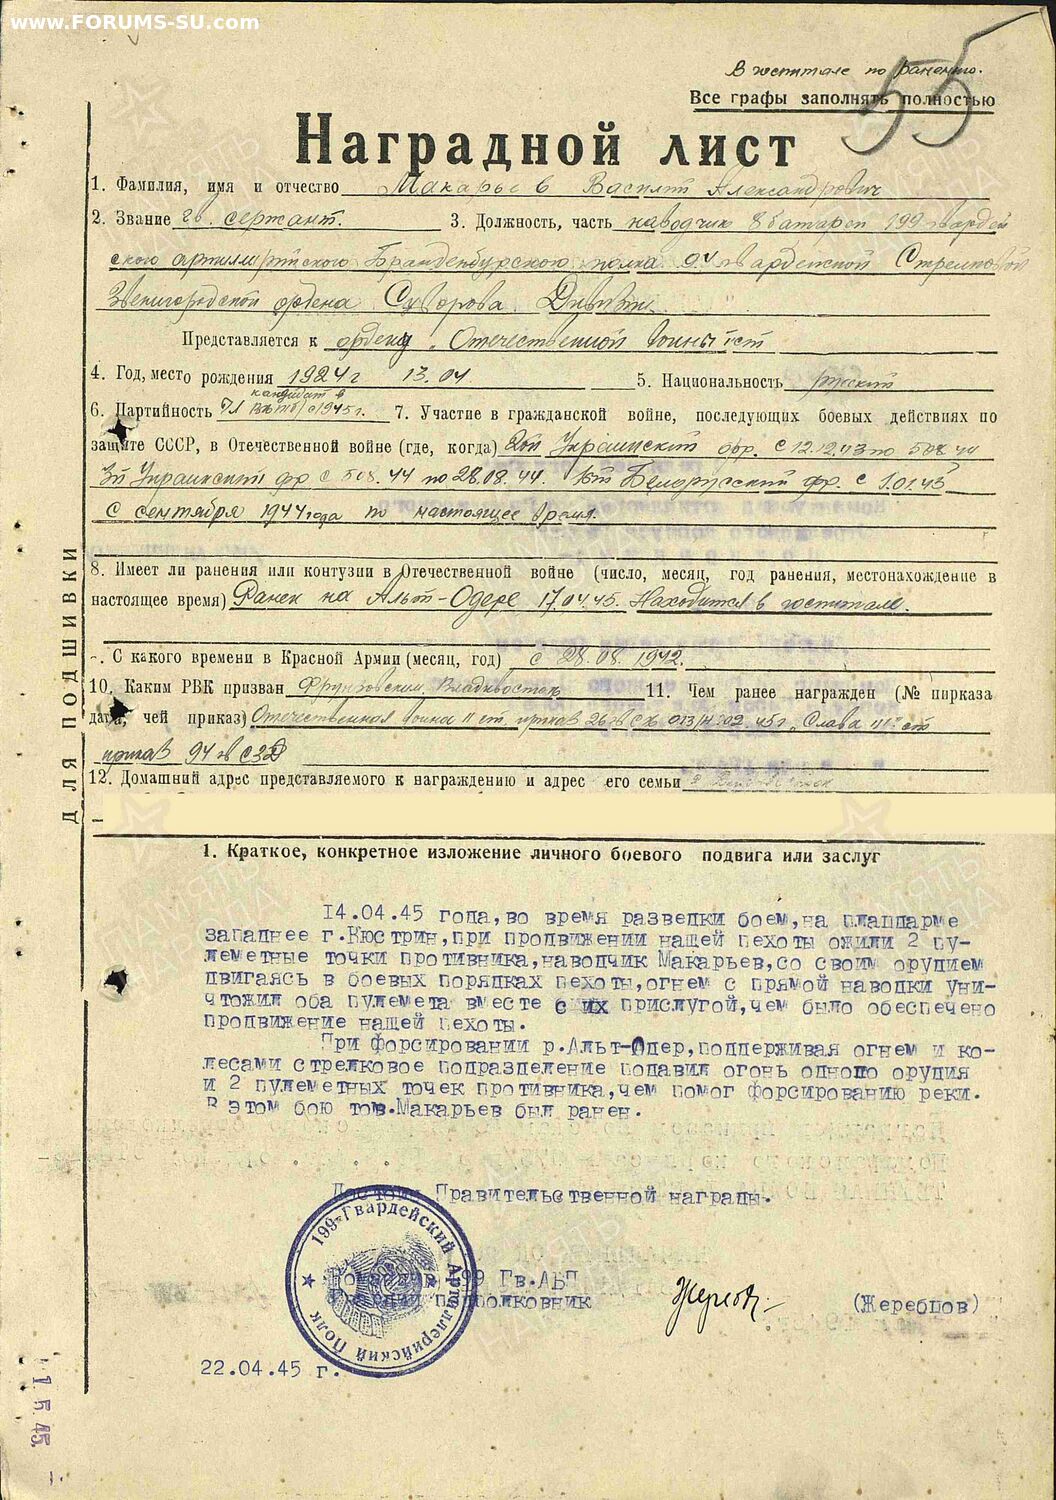 www.FORUMS-SU.com
В госпитале по ранению.
Все графы заполнять полностью
55
Наградной лист
1. Фамилия, имя и отчество Макарьев Василий Александрович
2. Звание гв. сержант. 3. Должность, часть наводчик 8 батареи 199 гвардей
ского артиллерийского Бранденбургского полка 94 гвардейской Стрелковой
Звенигородской ордена Суворова Дивизии
Представляется к ордену "Отечественной войны I ст
4. Год, место рождения 1924 г 13.04 5. Национальность русский
кандидат в
6. Партийность ВКП(б) с 1945 г. 7. Участие в гражданской войне, последующих боевых действиях по
защите СССР, в Отечественной войне (где, когда) 2ой Украинский фр. с 12.12.43 по 5.08.44
3й Украинский фр с 5.08.44 по 28.08.44. 1ый Белорусский фр. с
с сентября 1944 года по настоящее время.
8. Имеет ли ранения или контузии в Отечественной войне (число, месяц, год ранения, местонахождение в
настоящее время) Ранен на Альт-Одере 17.04.45. Находится в госпитале.
С какого времени в Красной Армии (месяц, год) с 28.08.1942.
10. Каким РВК призван Фрунзовским, Владивосток 11. Чем ранее награжден (№ приказа
дата, чей приказ) Отечественная война II ст, приказ 26 гв СК 013/н 02 45г, Слава III ст
приказ 94 гв СД
12. Домашний адрес представляемого к награждению и адрес его семьи
ДЛЯ ПОДШИВКИ
1. Краткое, конкретное изложение личного боевого подвига или заслуг
14.04.45 года, во время разведки боем, на плацдарме
западнее г.Кюстрин, при продвижении нащей пехоты ожили 2 пу-
леметные точки противника, наводчик Макарьев, со своим орудием
двигаясь в боевых порядках пехоты, огнем с прямой наводки уни-
чтожил оба пулемета вместе с их прислугой, чем было обеспечено
продвижение нащей пехоты.
При форсировании р.Альт-Одер, поддерживая огнем и ко-
лесами стрелковое подразделение подавил огонь одного орудия
и 2 пулеметных точек противника, чем помог форсированию реки.
В этом бою тов.Макарьев был ранен.
Достоин Правительственной награды.
199-Гвардейский Артиллерийский Полк
Командир 199 Гв.АБП
Гвардии подполковник (Жеребцов)
22.04.45 г.
1.5.45.